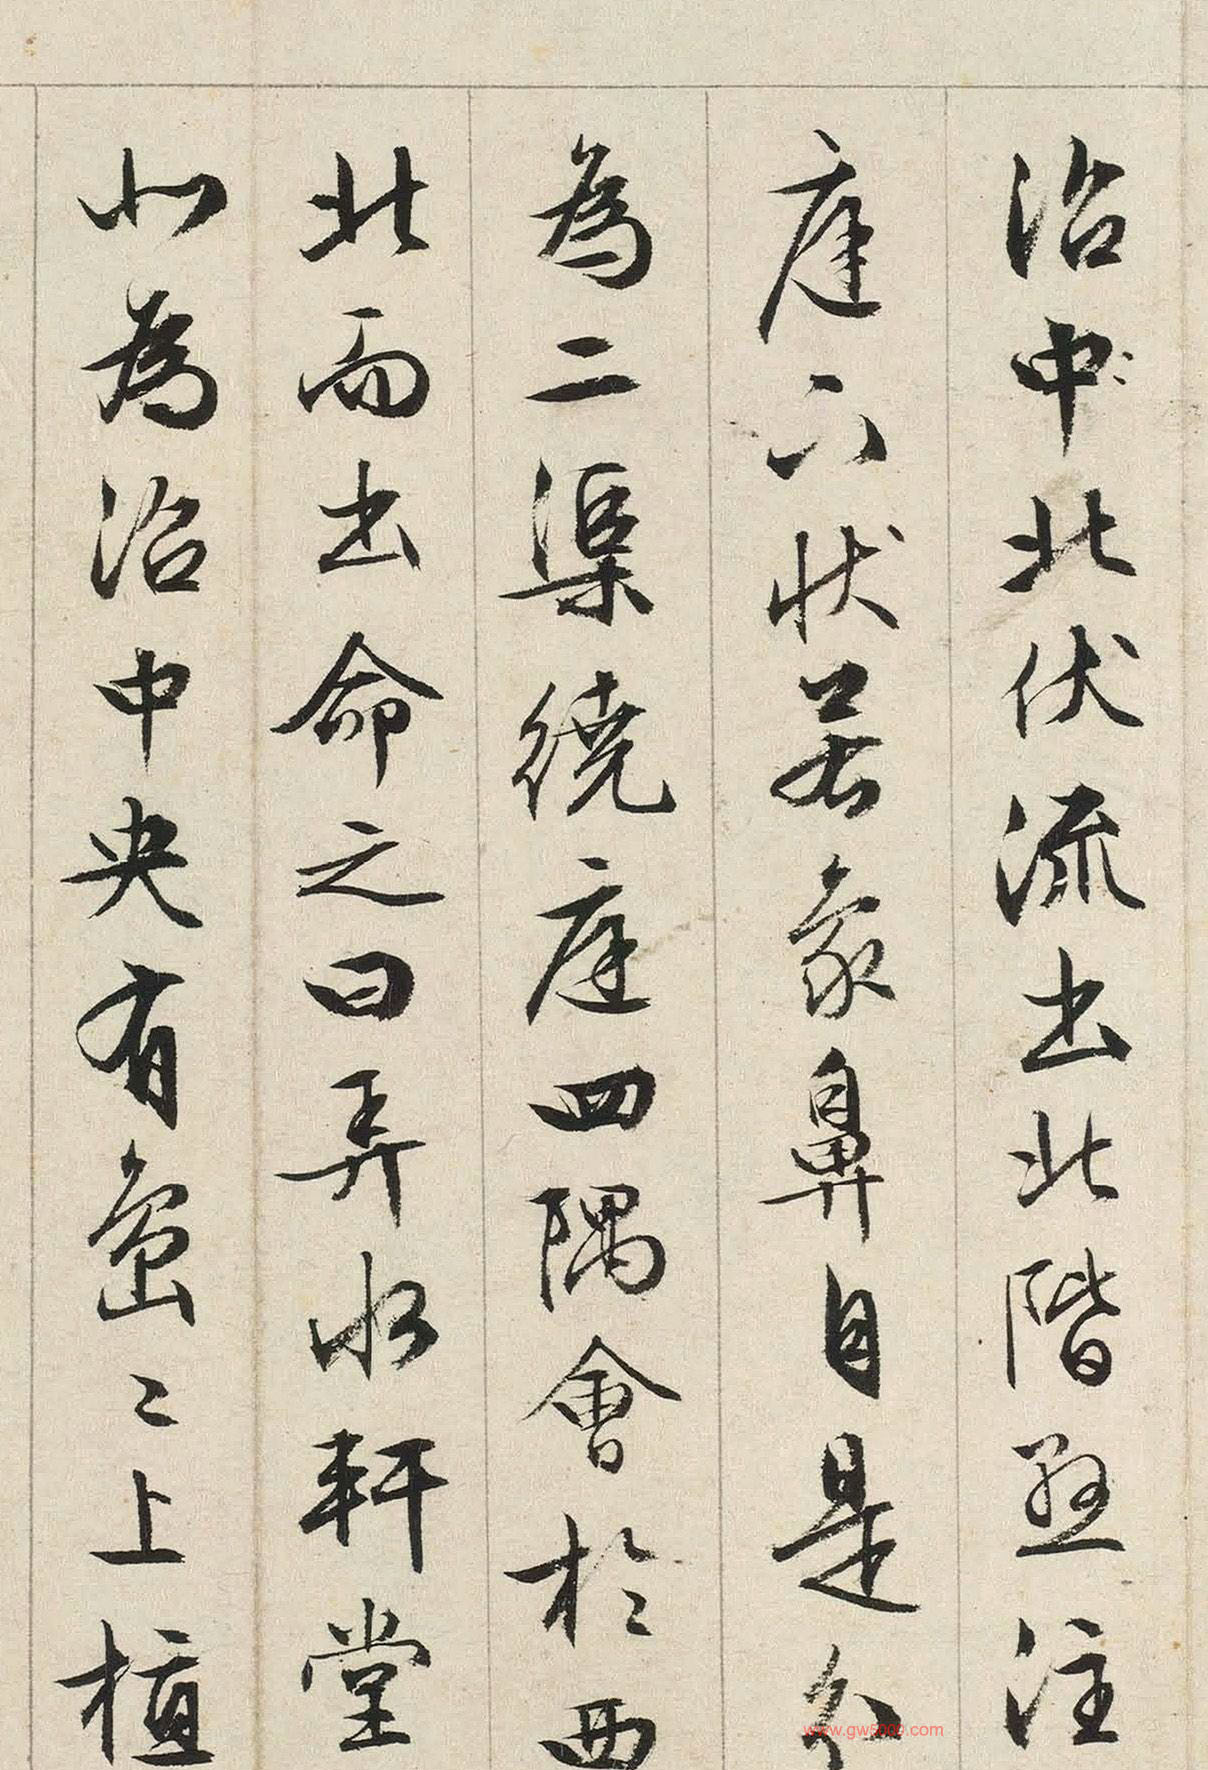 沼中北伏流出北階懸注
庭下狀若象鼻自是分
為二渠繞庭四隅會於西
北而出命之曰弄水軒堂
北為沼中央有島〻上植
www.gw5000.com